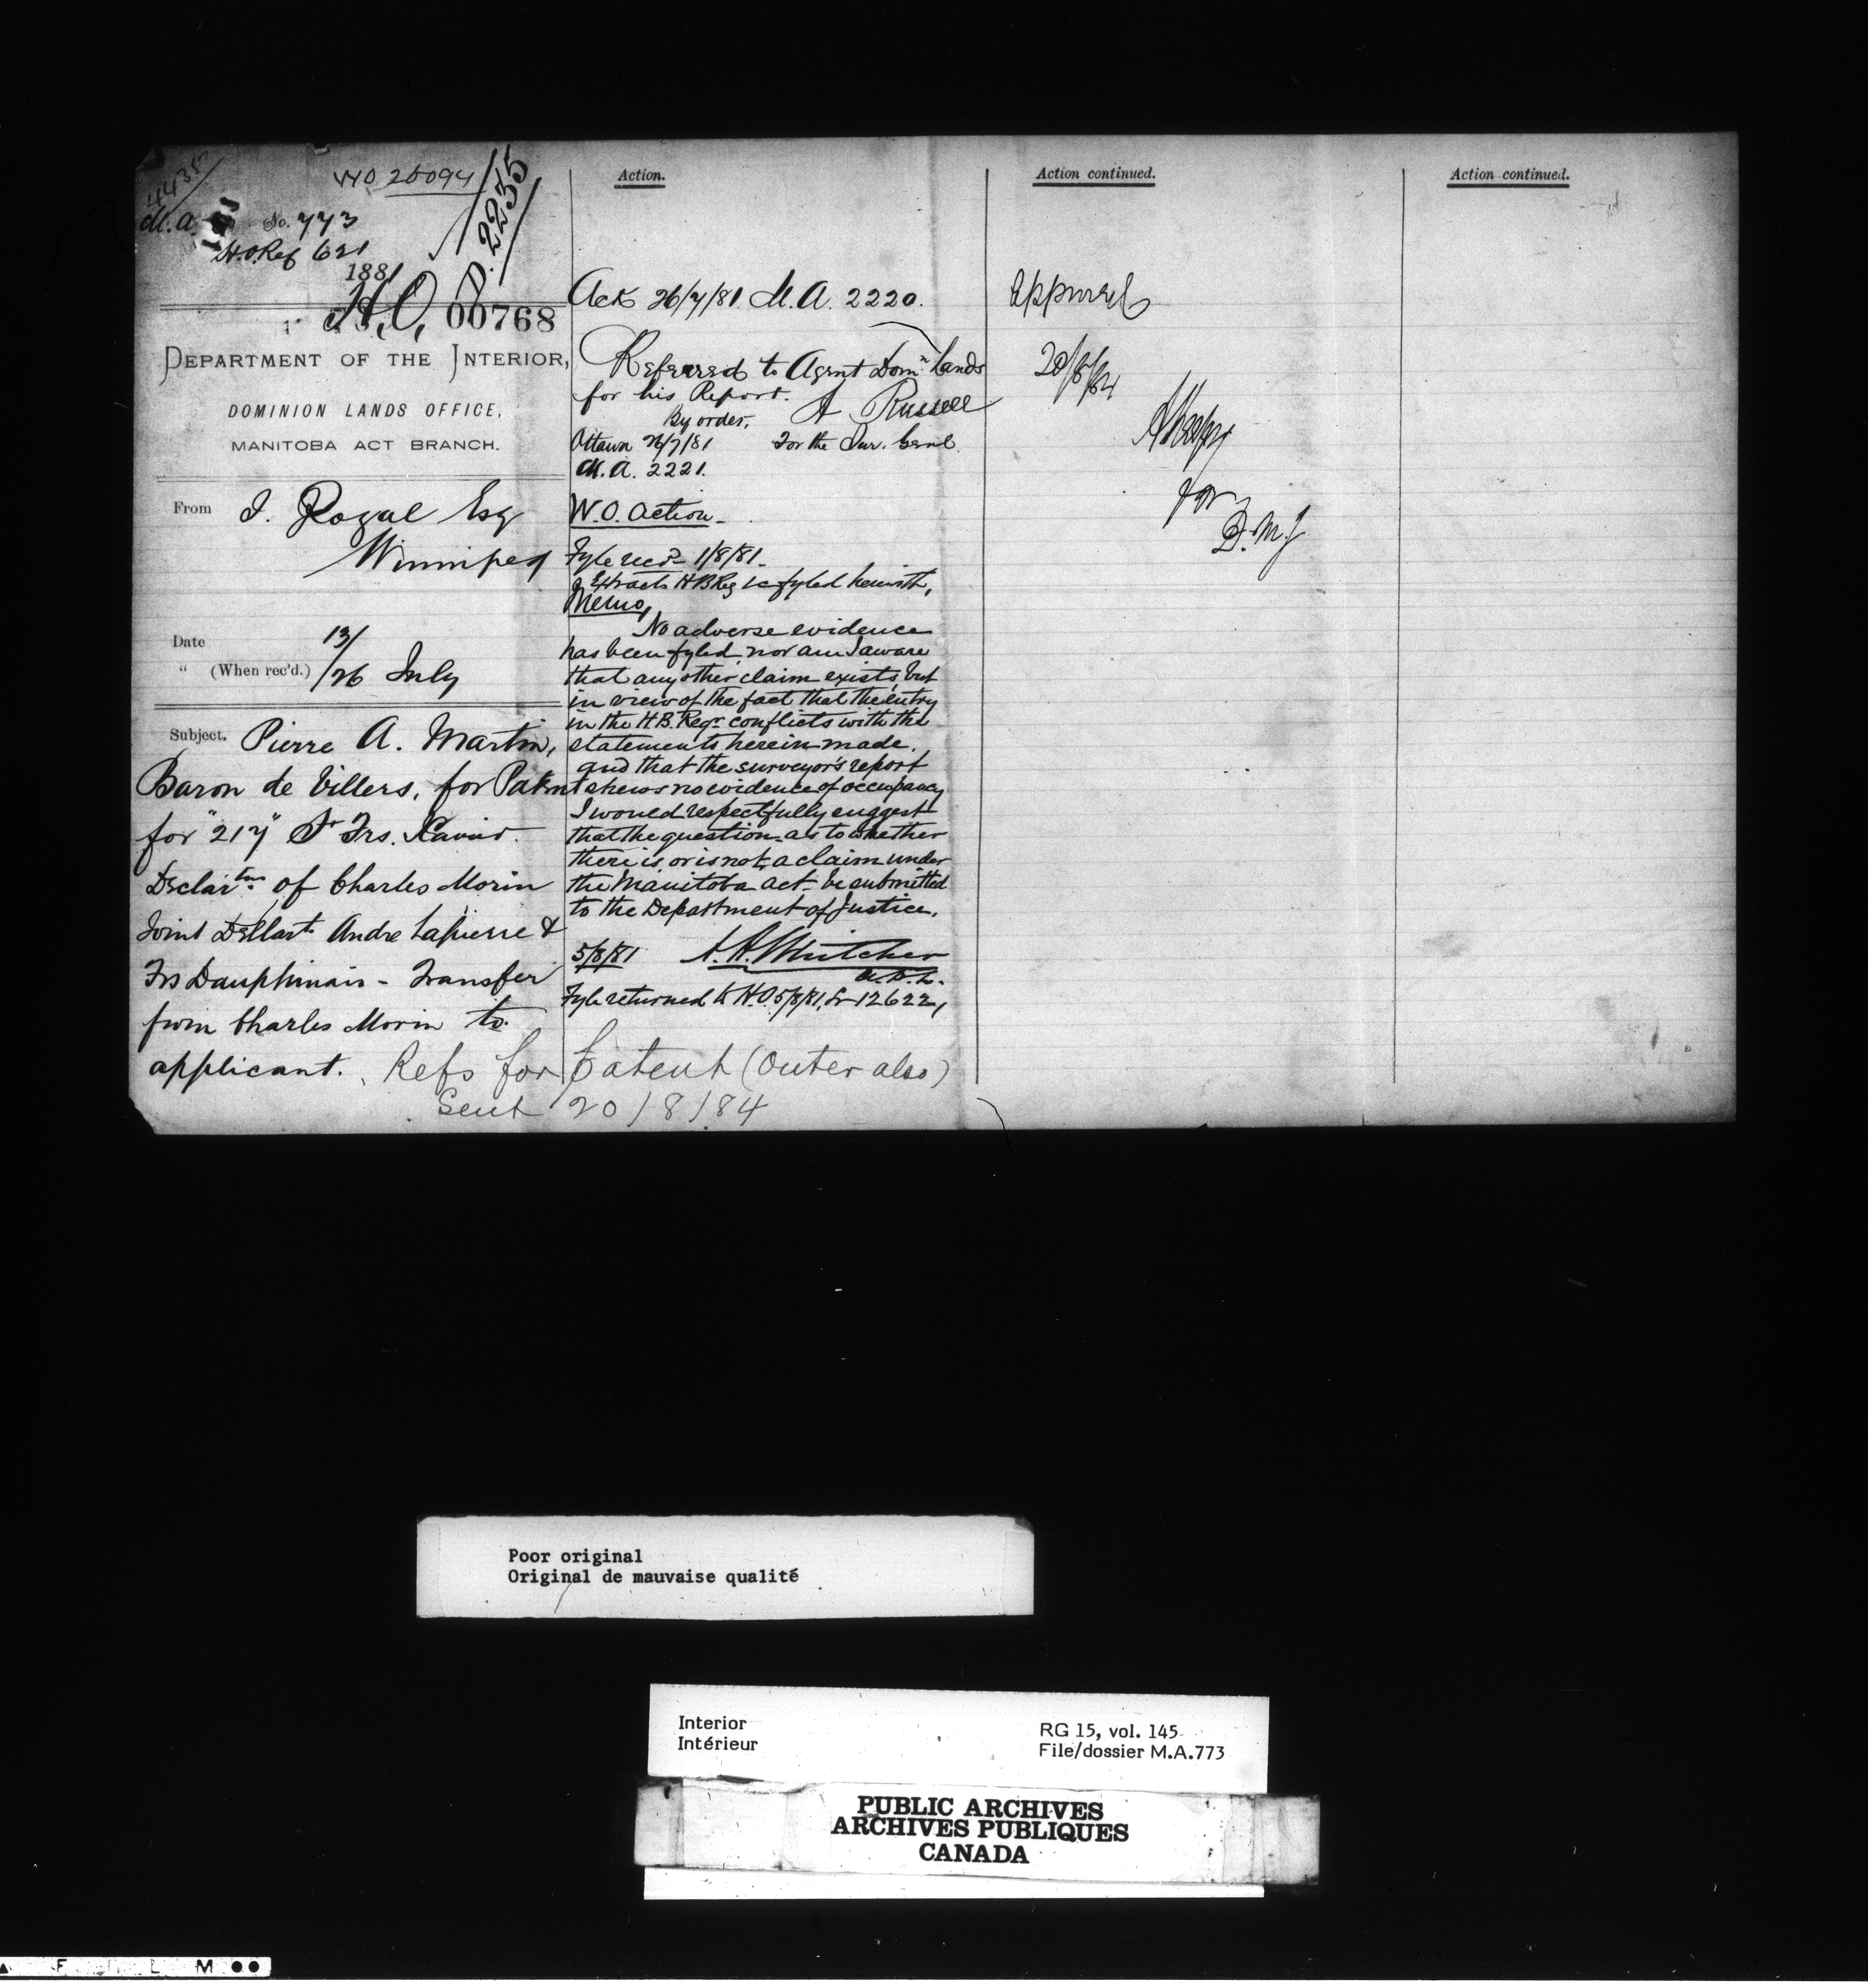 4435
W O 25094
D. 2235
M.A. No. 773
H.O. Ref 621
1881
H.O. 00768
DEPARTMENT OF THE INTERIOR,
DOMINION LANDS OFFICE,
MANITOBA ACT BRANCH.
From J. Royal Esq
Winnipeg
Date 13/
" (When rec'd.) /26 July
Subject. Pierre A. Martin,
Baron de Villers, for Patent
for "217" St Frs. Xavier.
Declartns of Charles Morin
Joint Declart. Andre Lapierre &
Frs Dauphinais - Transfer
from Charles Morin to
applicant. Refs for Patent (Outer also)
Sent 20/8/84
Action.
Ack 26/7/81 M.A. 2220.
Referred to Agent Domn Lands
for his Report.
By order, A Russell
Ottawa 26/7/81 For the Sur. Genl.
M.A. 2221.
W.O. Action.
Fyle recd 1/8/81.
Extracts H B Reg is fyled herewith,
Memo,
No adverse evidence
has been fyled, nor am I aware
that any other claim exists, but
in view of the fact that the entry
in the H.B. Regr. conflicts with the
statements herein made,
and that the surveyor's report
shews no evidence of occupancy
I would respectfully suggest
that the question as to whether
there is or is not a claim under
the Manitoba Act be submitted
to the Department of Justice.
5/8/81 A.H. Whitcher
A.D.L.
Fyle returned to H.O. 5/8/81, Lr 12622,
Action continued.
Approved
20/8/84
for
D.M.J
Action continued.
Poor original
Original de mauvaise qualité
Interior
Intérieur
RG 15, vol. 145
File/dossier M.A.773
PUBLIC ARCHIVES
ARCHIVES PUBLIQUES
CANADA
F I L M